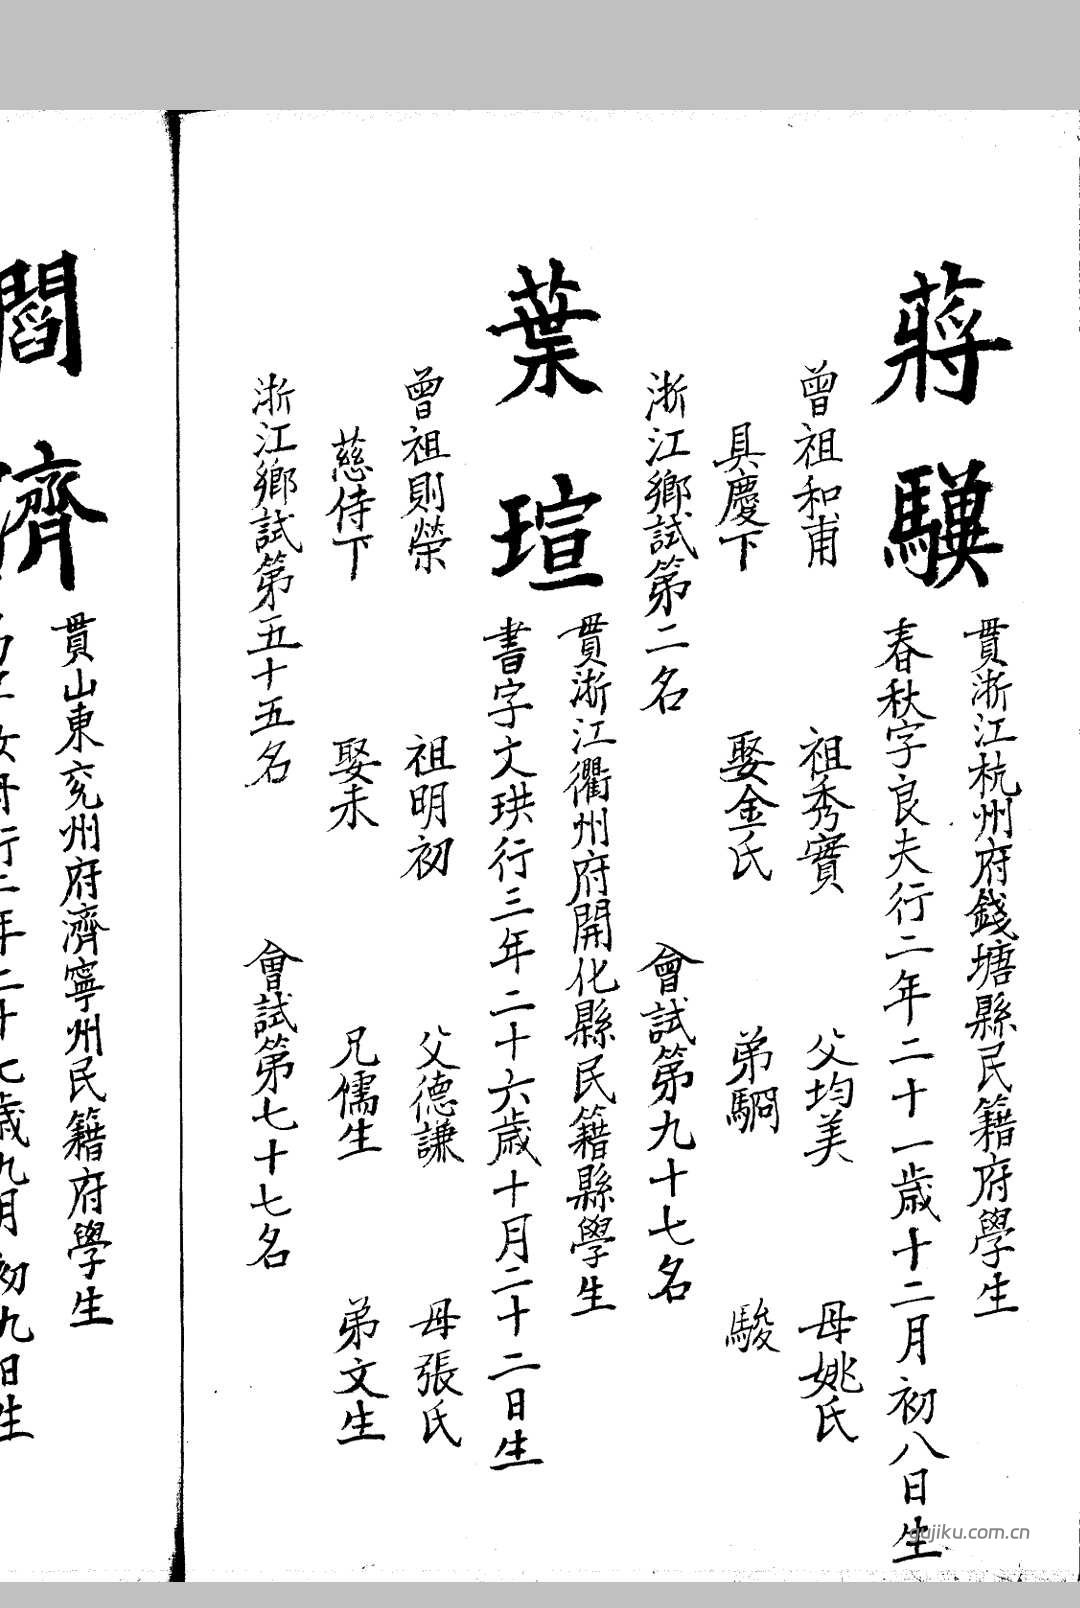 蔣驥
貫浙江杭州府錢塘縣民籍府學生
春秋字良夫行二年二十一歲十二月初八日生
曾祖和甫 祖秀實 父均美 母姚氏
具慶下 娶金氏 弟駉 駿
浙江鄉試第二名 會試第九十七名
葉瑄
貫浙江衢州府開化縣民籍縣學生
書字文珙行三年二十六歲十月二十二日生
曾祖則榮 祖明初 父德謙 母張氏
慈侍下 娶未 兄儒生 弟文生
浙江鄉試第五十五名 會試第七十七名
閻濟
貫山東兗州府濟寧州民籍府學生
行二年二十七歲九月初九日生
gujiku.com.cn